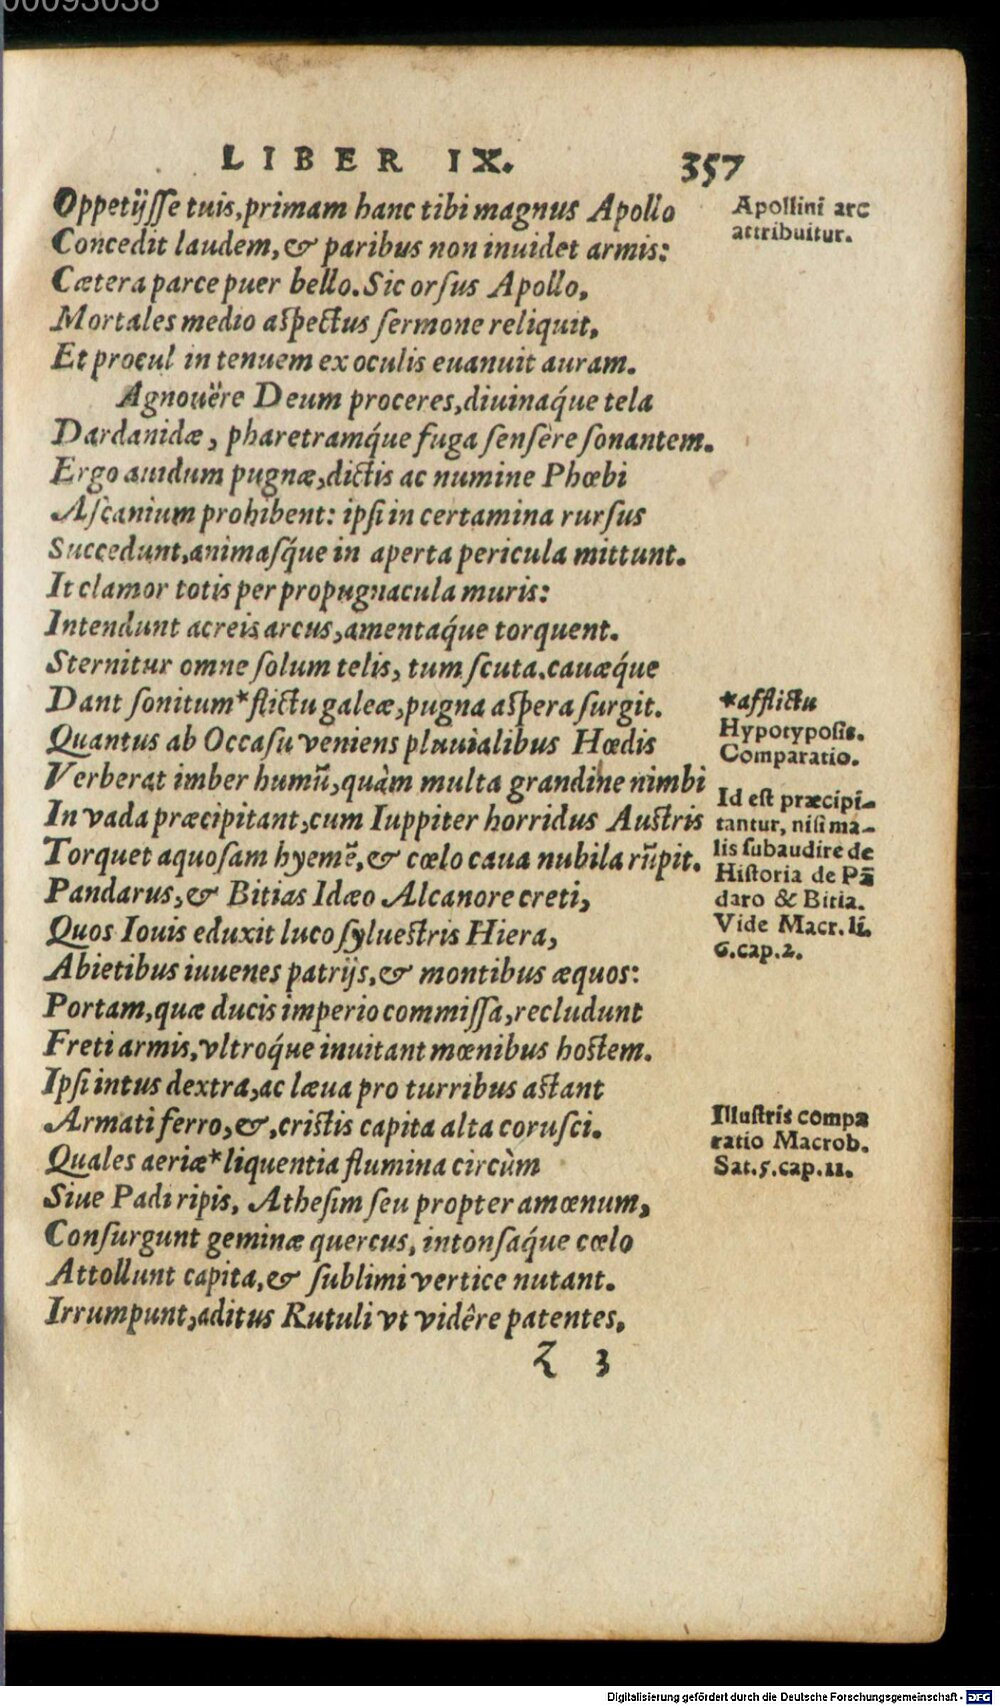 00093038
LIBER IX. 357
Oppetijsse tuis, primam hanc tibi magnus Apollo
Concedit laudem, & paribus non inuidet armis:
Cætera parce puer bello. Sic orsus Apollo,
Mortales medio aspectus sermone reliquit,
Et procul in tenuem ex oculis euanuit auram.
Agnouëre Deum proceres, diuinaq́ue tela
Dardanidæ, pharetramq́ue fuga sensère sonantem.
Ergo auidum pugnæ, dictis ac numine Phœbi
Ascanium prohibent: ipsi in certamina rursus
Succedunt, animasq́ue in aperta pericula mittunt.
It clamor totis per propugnacula muris:
Intendunt acreis arcus, amentaq́ue torquent.
Sternitur omne solum telis, tum scuta, cauæq́ue
Dant sonitum * flictu galeæ, pugna aspera surgit.
Quantus ab Occasu veniens pluuialibus Hœdis
Verberat imber humū, quàm multa grandine nimbi
In vada præcipitant, cum Iuppiter horridus Austris
Torquet aquosam hyemē, & cœlo caua nubila rūpit.
Pandarus, & Bitias Idæo Alcanore creti,
Quos Iouis eduxit luco syluestris Hiera,
Abietibus iuuenes patrijs, & montibus æquos:
Portam, quæ ducis imperio commissa, recludunt
Freti armis, vltroq́ue inuitant mœnibus hostem.
Ipsi intus dextra, ac læua pro turribus astant
Armati ferro, &, cristis capita alta corusci.
Quales aeriæ * liquentia flumina circùm
Siue Padi ripis, Athesim seu propter amœnum,
Consurgunt geminæ quercus, intonsaq́ue cœlo
Attollunt capita, & sublimi vertice nutant.
Irrumpunt, aditus Rutuli vt vidêre patentes,
Z 3
Apollini arc
attribuitur.
*afflictu
Hypotyposis.
Comparatio.
Id est præcipi-
tantur, nisi ma-
lis subaudire de
Historia de Pā
daro & Bitia.
Vide Macr. li.
6. cap. 2.
Illustris compa
ratio Macrob.
Sat. 5. cap. 11.
Digitalisierung gefördert durch die Deutsche Forschungsgemeinschaft - DFG